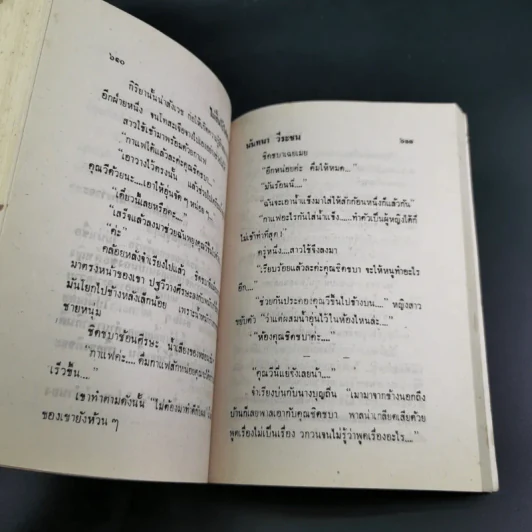 ๖๑๐
กิริยานั้นน่าสังเวช
อีกฝ่ายหนึ่ง
สาวใช้เข้ามาพร้อมด้วยกาแฟ
"กาแฟได้แล้วละค่ะคุณชิดชบา
"เอาวางไว้ตรงนั้น
คุณวีด้วยนะ....เอาให้อุ่นจัด ๆ หน่อย
"เดี๋ยวนี้เลยหรือคะ..."
"เสร็จแล้วลงมาช่วยฉันพยุงคุณวี
"ค่ะ"
คล้อยหลังจำเรียงไปแล้ว
มาตรงหน้าของเขา ปฐวีวางศีรษะลงกับ
มันโยกไปข้างหลังเล็กน้อย
ชายหนุ่ม
ชิดชบาช้อนศีรษะ
"กาแฟค่ะ.... ดื่มกาแฟสักหน่อย
เร็วขึ้น...."
เขาทำตามดังนั้น "ไม่ต้องมาทำดีกับ
ของเขายังห้วน ๆ
นันทนา วีระชน
๖๑๑
ชิดชบาเฉยเมย
"อีกหน่อยค่ะ ดื่มให้หมด..."
"มันร้อนนี่...."
"ฉันจะเอาน้ำแข็งมาใส่ให้สักก้อนหนึ่งก็แล้วกัน"
"กาแฟอะไรกันใส่น้ำแข็ง.....ทำตัวเป็นผู้หญิงได้ก็
ไม่เข้าท่าที่สุด !"
ครู่หนึ่ง....สาวใช้จึงลงมา
"เรียบร้อยแล้วละค่ะคุณชิดชบา จะให้หนูทำอะไร
อีก...."
"ช่วยกันประคองคุณวีขึ้นไปข้างบน...." หญิงสาว
ขยับตัว "ว่าแต่ผสมน้ำอุ่นไว้ในห้องไหนล่ะ...."
"ห้องคุณชิดชบาค่ะ...."
"คุณวีนี่แย่จังเลยน้า...."
จำเรียงบ่นกับนางบุญถิ่น "เมามาจากข้างนอกถึง
บ้านก็เลยพาลเอากับคุณชิดชบา พาลน่าเกลียดเสียด้วย
พูดเรื่องไม่เป็นเรื่อง วกวนจนไม่รู้ว่าพูดเรื่องอะไร...."